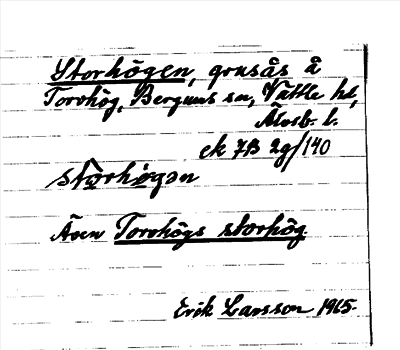 Storhögen, grusås å
Torrhög, Bergums sn, Vättle hd,
Älvsb. l.
ek 7B 2g/140
stòrhø̀gən
Även Torrhögs storhög.
Erik Larsson 1965.